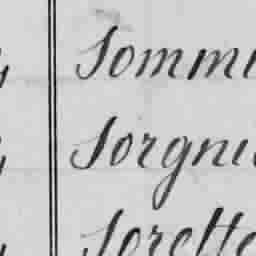 Sommi
Sorgni
Sorette